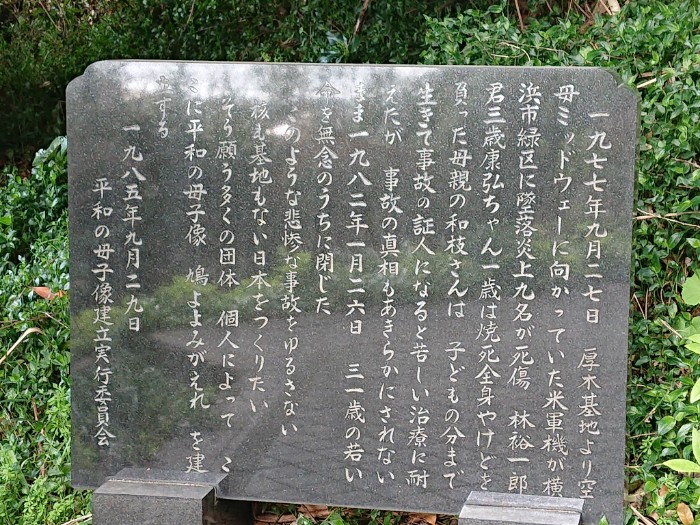 一九七七年九月二七日　厚木基地より空
母ミッドウェーに向かっていた米軍機が横
浜市緑区に墜落炎上九名が死傷　林裕一郎
君三歳康弘ちゃん一歳は焼死全身やけどを
負った母親の和枝さんは　子どもの分まで
生きて事故の証人になると苦しい治療に耐
えたが　事故の真相もあきらかにされない
まま一九八二年一月二六日　三一歳の若い
命を無念のうちに閉じた
このような悲惨な事故をゆるさない
核も基地もない日本をつくりたい
そう願う多くの団体　個人によって　こ
こに平和の母子像　鳩よよみがえれ　を建
立する
一九八五年九月二九日
平和の母子像建立実行委員会